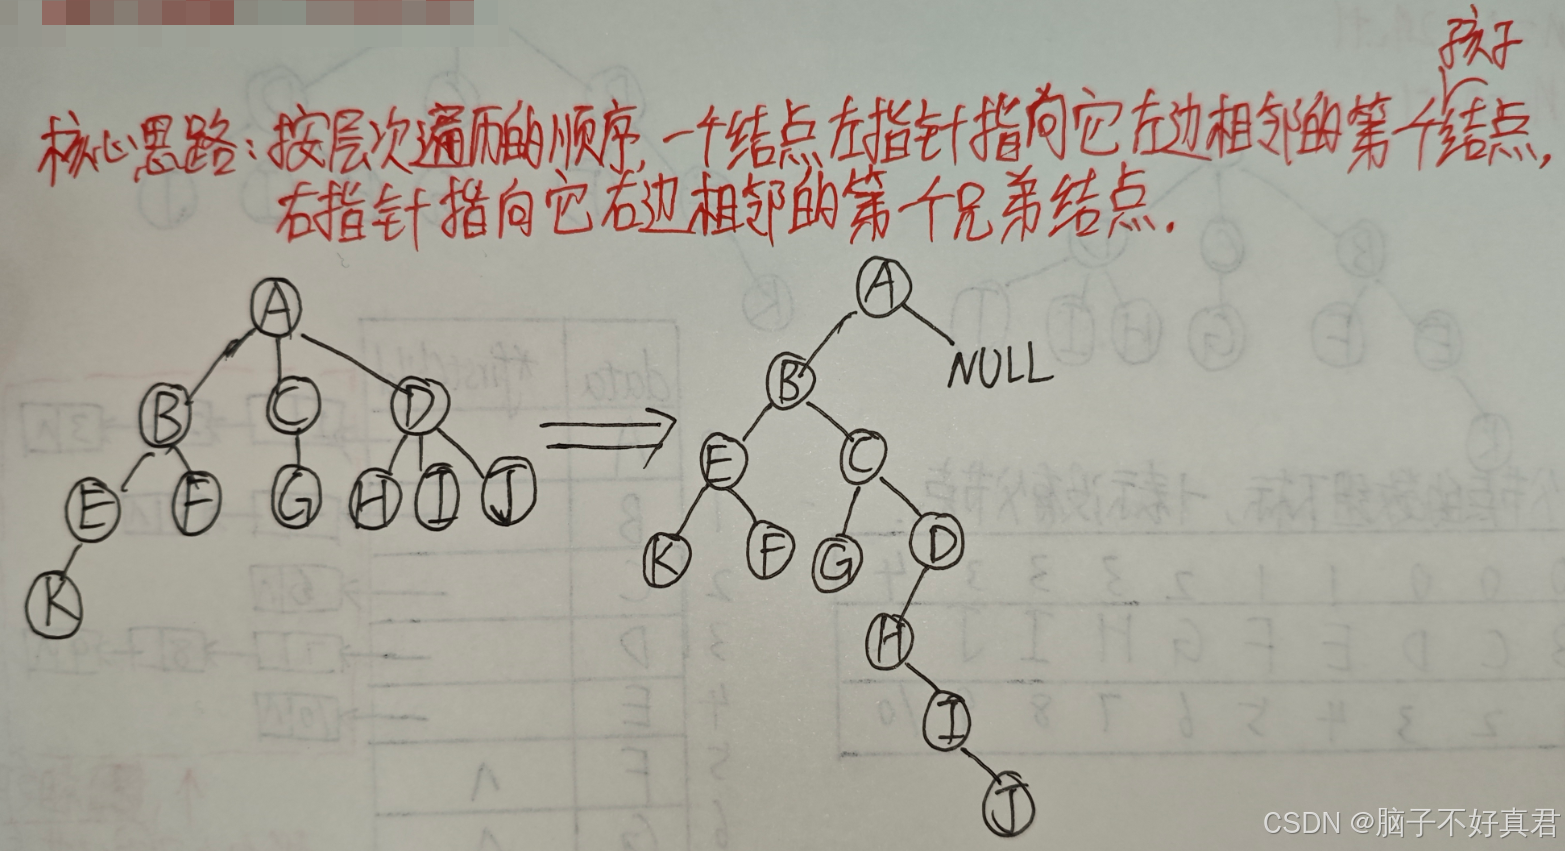 孩子
核心思路:按层次遍历的顺序,一个结点左指针指向它左边相邻的第一个结点,
右指针指向它右边相邻的第一个兄弟结点.
A
B C D
E F G H I J
K
A
B NULL
E C
K F G D
H
I
J
CSDN @脑子不好真君